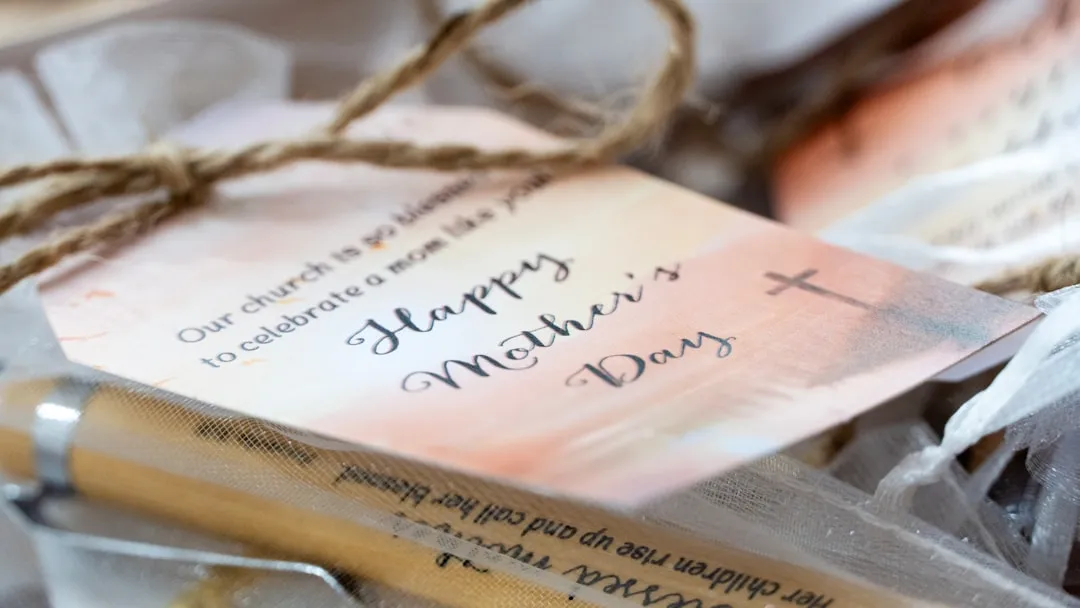 Our church is so blessed
to celebrate a mom like you!
Happy
Mother's
Day
Her children rise up and call her blessed.